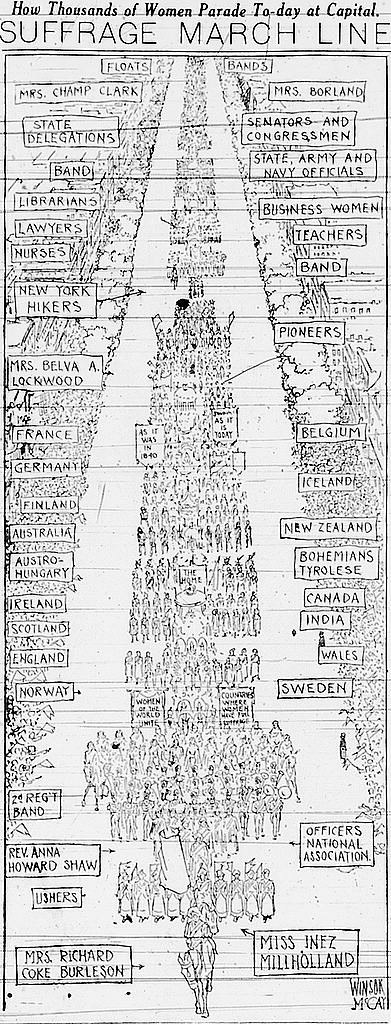 How Thousands of Women Parade To-day at Capital.
SUFFRAGE MARCH LINE
FLOATS
BANDS
MRS. CHAMP CLARK
MRS. BORLAND
STATE
DELEGATIONS
SENATORS AND
CONGRESSMEN
BAND
STATE, ARMY AND
NAVY OFFICIALS
LIBRARIANS
BUSINESS WOMEN
LAWYERS
TEACHERS
NURSES
BAND
NEW YORK
HIKERS
PIONEERS
MRS. BELVA A.
LOCKWOOD
AS IT
WAS
IN
1840
AS IT
TODAY
FRANCE
BELGIUM
GERMANY
ICELAND
FINLAND
NEW ZEALAND
AUSTRALIA
BOHEMIANS
TYROLESE
AUSTRO-
HUNGARY
THE
HOME
CANADA
IRELAND
INDIA
SCOTLAND
WALES
ENGLAND
SWEDEN
NORWAY
WOMEN
OF THE
WORLD
UNITE
COUNTRIES
WHERE
WOMEN
HAVE FULL
SUFFRAGE
2D REG'T
BAND
OFFICERS
NATIONAL
ASSOCIATION.
REV. ANNA
HOWARD SHAW
USHERS
MISS INEZ
MILLHOLLAND
MRS. RICHARD
COKE BURLESON
WINSOR
McCAY